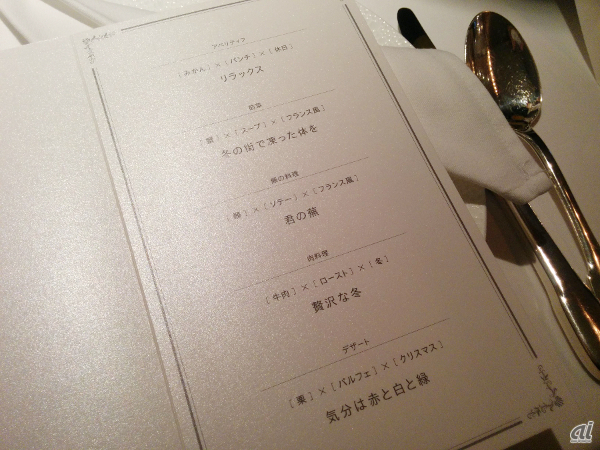 アペリティフ
[みかん]×[パンチ]×[休日]
リラックス
前菜
×[スープ]×[フランス風]
冬の街で凍った体を
[ ]×[ソテー]×[フランス風]
君の蕪
肉料理
[牛肉]×[ロースト]×[冬]
贅沢な冬
デザート
[栗]×[パルフェ]×[クリスマス]
気分は赤と白と緑
ai